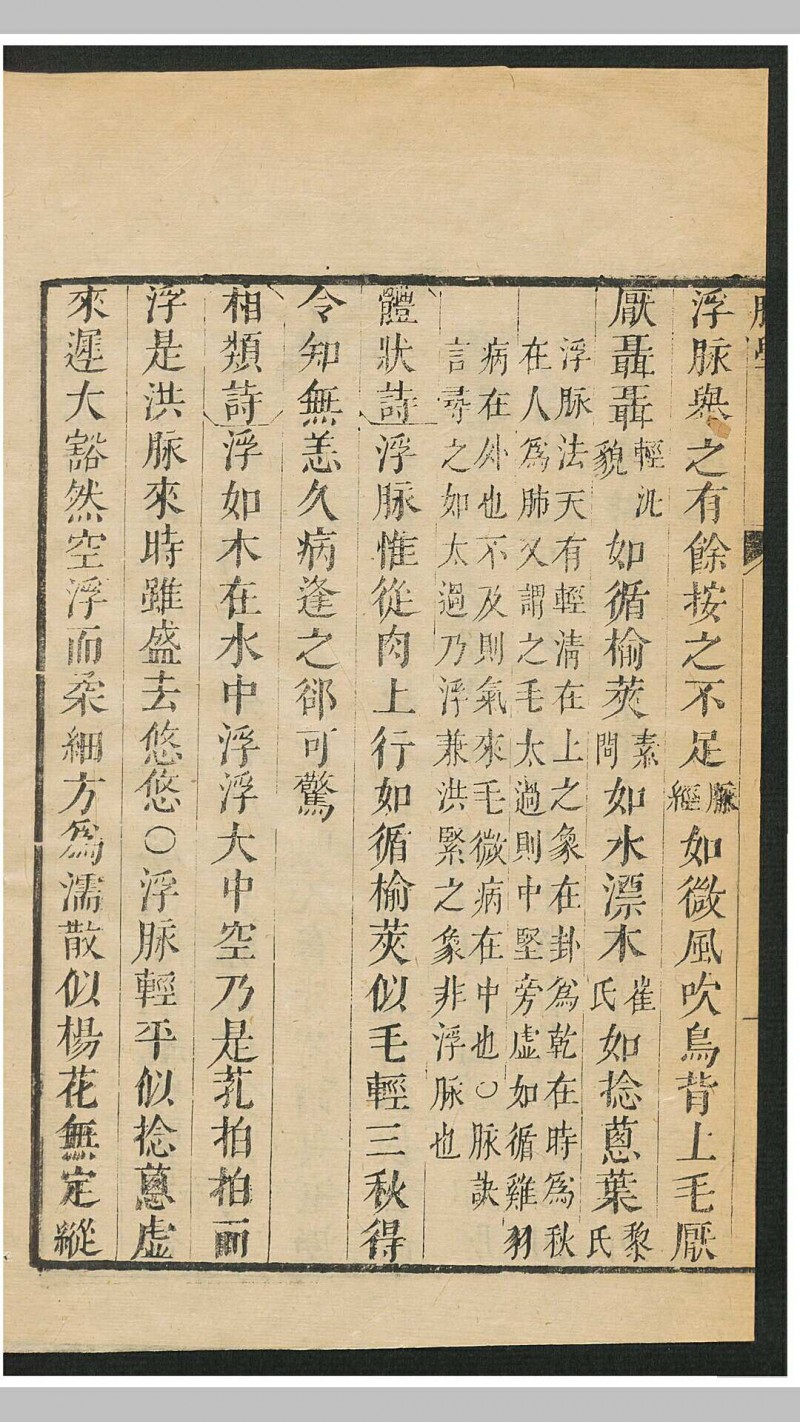 浮脉舉之有餘按之不足脉經如微風吹鳥背上毛厭
厭聶聶輕汎貌如循榆莢素問如水漂木崔氏如捻葱葉黎氏
浮脉法天有輕清在上之象在卦爲乾在時爲秋
在人爲肺又謂之毛太過則中堅旁虛如循雞羽
病在外也不及則氣來毛微病在中也○脉訣
言尋之如太過乃浮兼洪緊之象非浮脉也
體狀詩浮脉惟從肉上行如循榆莢似毛輕三秋得
令知無恙久病逢之郤可驚
相類詩浮如木在水中浮浮大中空乃是芤拍拍而
浮是洪脉來時雖盛去悠悠○浮脉輕平似捻蔥虛
來遲大豁然空浮而柔細方爲濡散似楊花無定蹤